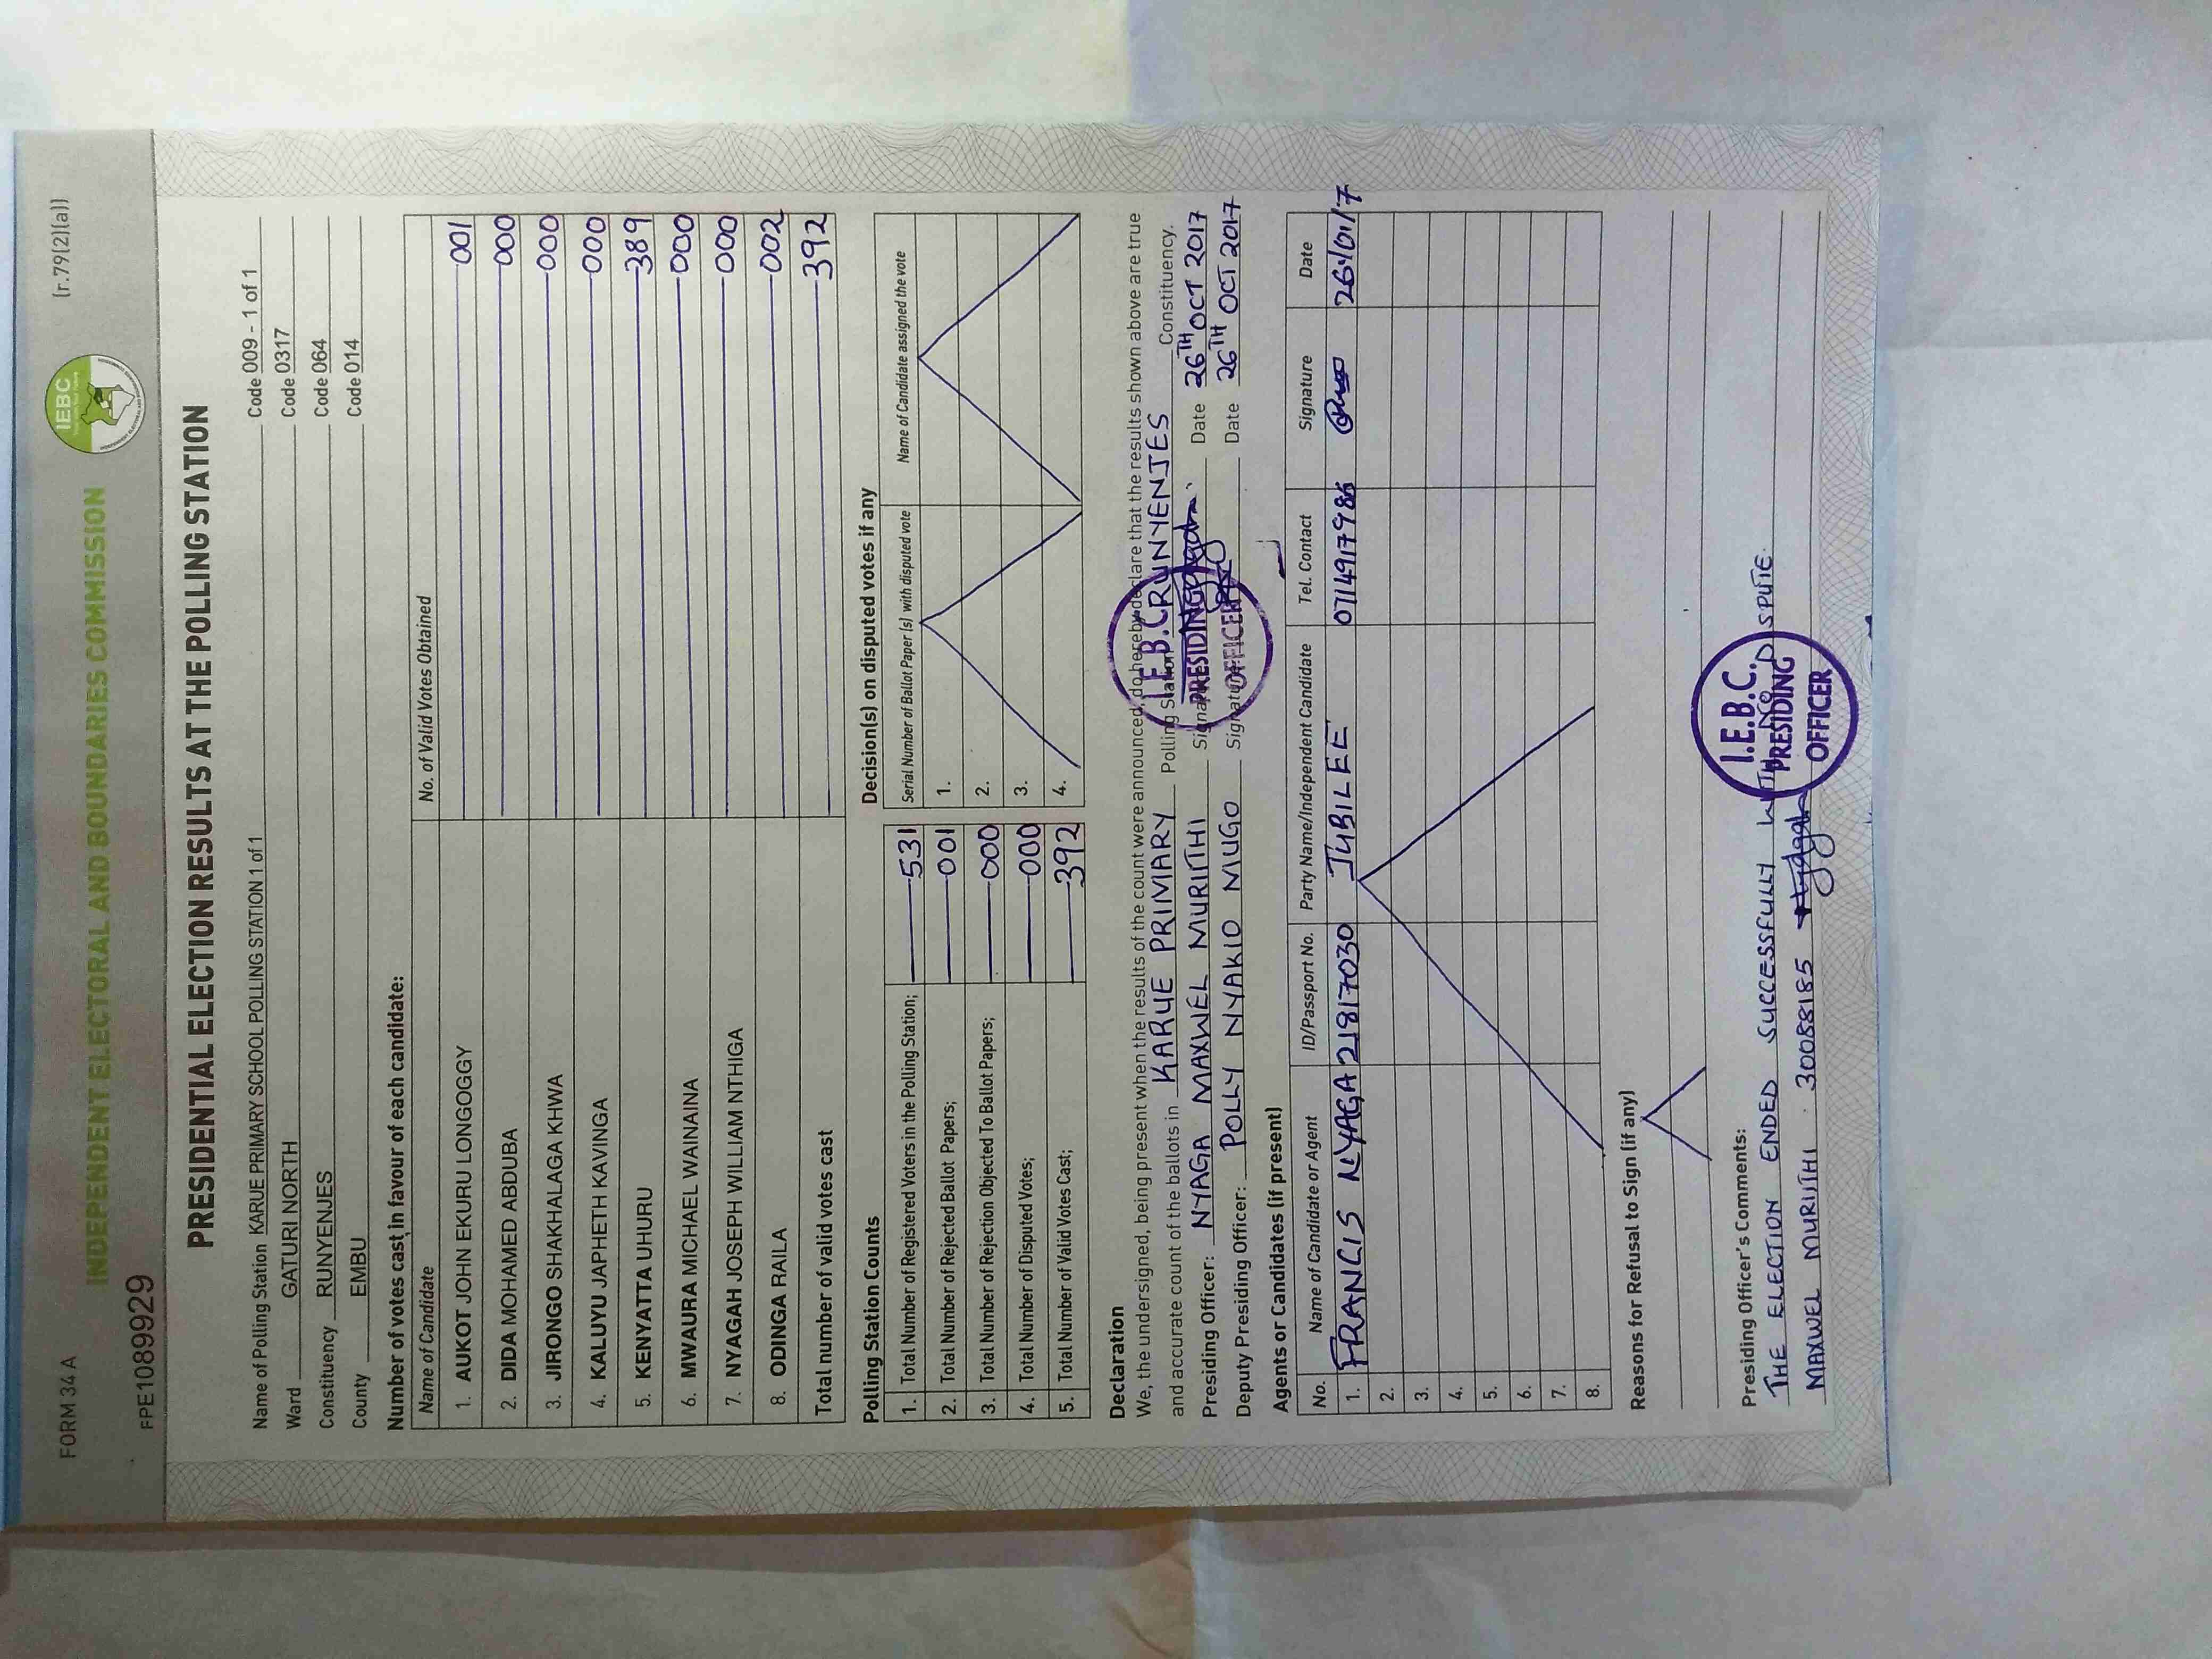 FORM 34 A
(r.79(2)(a))
INDEPENDENT ELECTORAL AND BOUNDARIES COMMISSION
IEBC
FPE1089929
PRESIDENTIAL ELECTION RESULTS AT THE POLLING STATION
Name of Polling Station KARUE PRIMARY SCHOOL POLLING STATION 1 of 1 Code 009 - 1 of 1
Ward GATURI NORTH Code 0317
Constituency RUNYENJES Code 064
County EMBU Code 014
Number of votes cast in favour of each candidate:
Name of Candidate No. of Valid Votes Obtained
1. AUKOT JOHN EKURU LONGOGGY 001
2. DIDA MOHAMED ABDUBA 000
3. JIRONGO SHAKHALAGA KHWA 000
4. KALUYU JAPHETH KAVINGA 000
5. KENYATTA UHURU 389
6. MWAURA MICHAEL WAINAINA 000
7. NYAGAH JOSEPH WILLIAM NTHIGA 000
8. ODINGA RAILA 002
Total number of valid votes cast 392
Polling Station Counts
1. Total Number of Registered Voters in the Polling Station; 531
2. Total Number of Rejected Ballot Papers; 001
3. Total Number of Rejection Objected To Ballot Papers; 000
4. Total Number of Disputed Votes; 000
5. Total Number of Valid Votes Cast; 392
Decision(s) on disputed votes if any
Serial Number of Ballot Paper (s) with disputed vote Name of Candidate assigned the vote
1.
2.
3.
4.
Declaration
We, the undersigned, being present when the results of the count were announced, do hereby declare that the results shown above are true
and accurate count of the ballots in KARUE PRIMARY Polling Station RUNYENJES Constituency.
Presiding Officer: NYAGA MAXWEL MURIITHI Signature Date 26TH OCT 2017
Deputy Presiding Officer: POLLY NYAKIO MUGO Signature Date 26TH OCT 2017
I.E.B.C.
PRESIDING
OFFICER
Agents or Candidates (if present)
No. Name of Candidate or Agent ID/Passport No. Party Name/Independent Candidate Tel. Contact Signature Date
1. FRANCIS NYAGA 21817030 JUBILEE 0714917986 26/01/7
2.
3.
4.
5.
6.
7.
8.
Reasons for Refusal to Sign (if any)
Presiding Officer's Comments:
THE ELECTION ENDED SUCCESSFULLY WITH NO DISPUTE.
MAXWEL MURIITHI 30088185
I.E.B.C.
PRESIDING
OFFICER